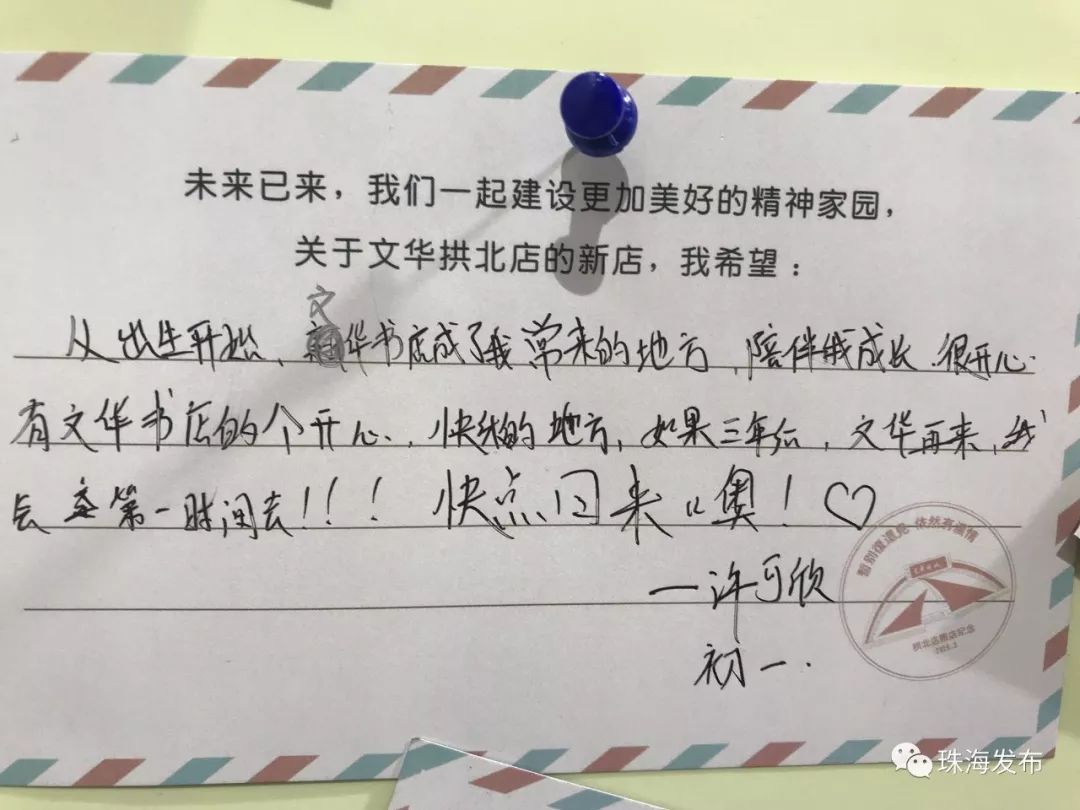 未来已来，我们一起建设更加美好的精神家园，
关于文华拱北店的新店，我希望：
从出生开始，文华书店成了我常来的地方，陪伴我成长，很开心
有文华书店的个开心、快乐的地方，如果三年后，文华再来，我
会 第一时间去！！！ 快点回来噢！♡
一许可欣
初一.
暂别復遇見 依然有溫情
拱北店閉店纪念
珠海发布